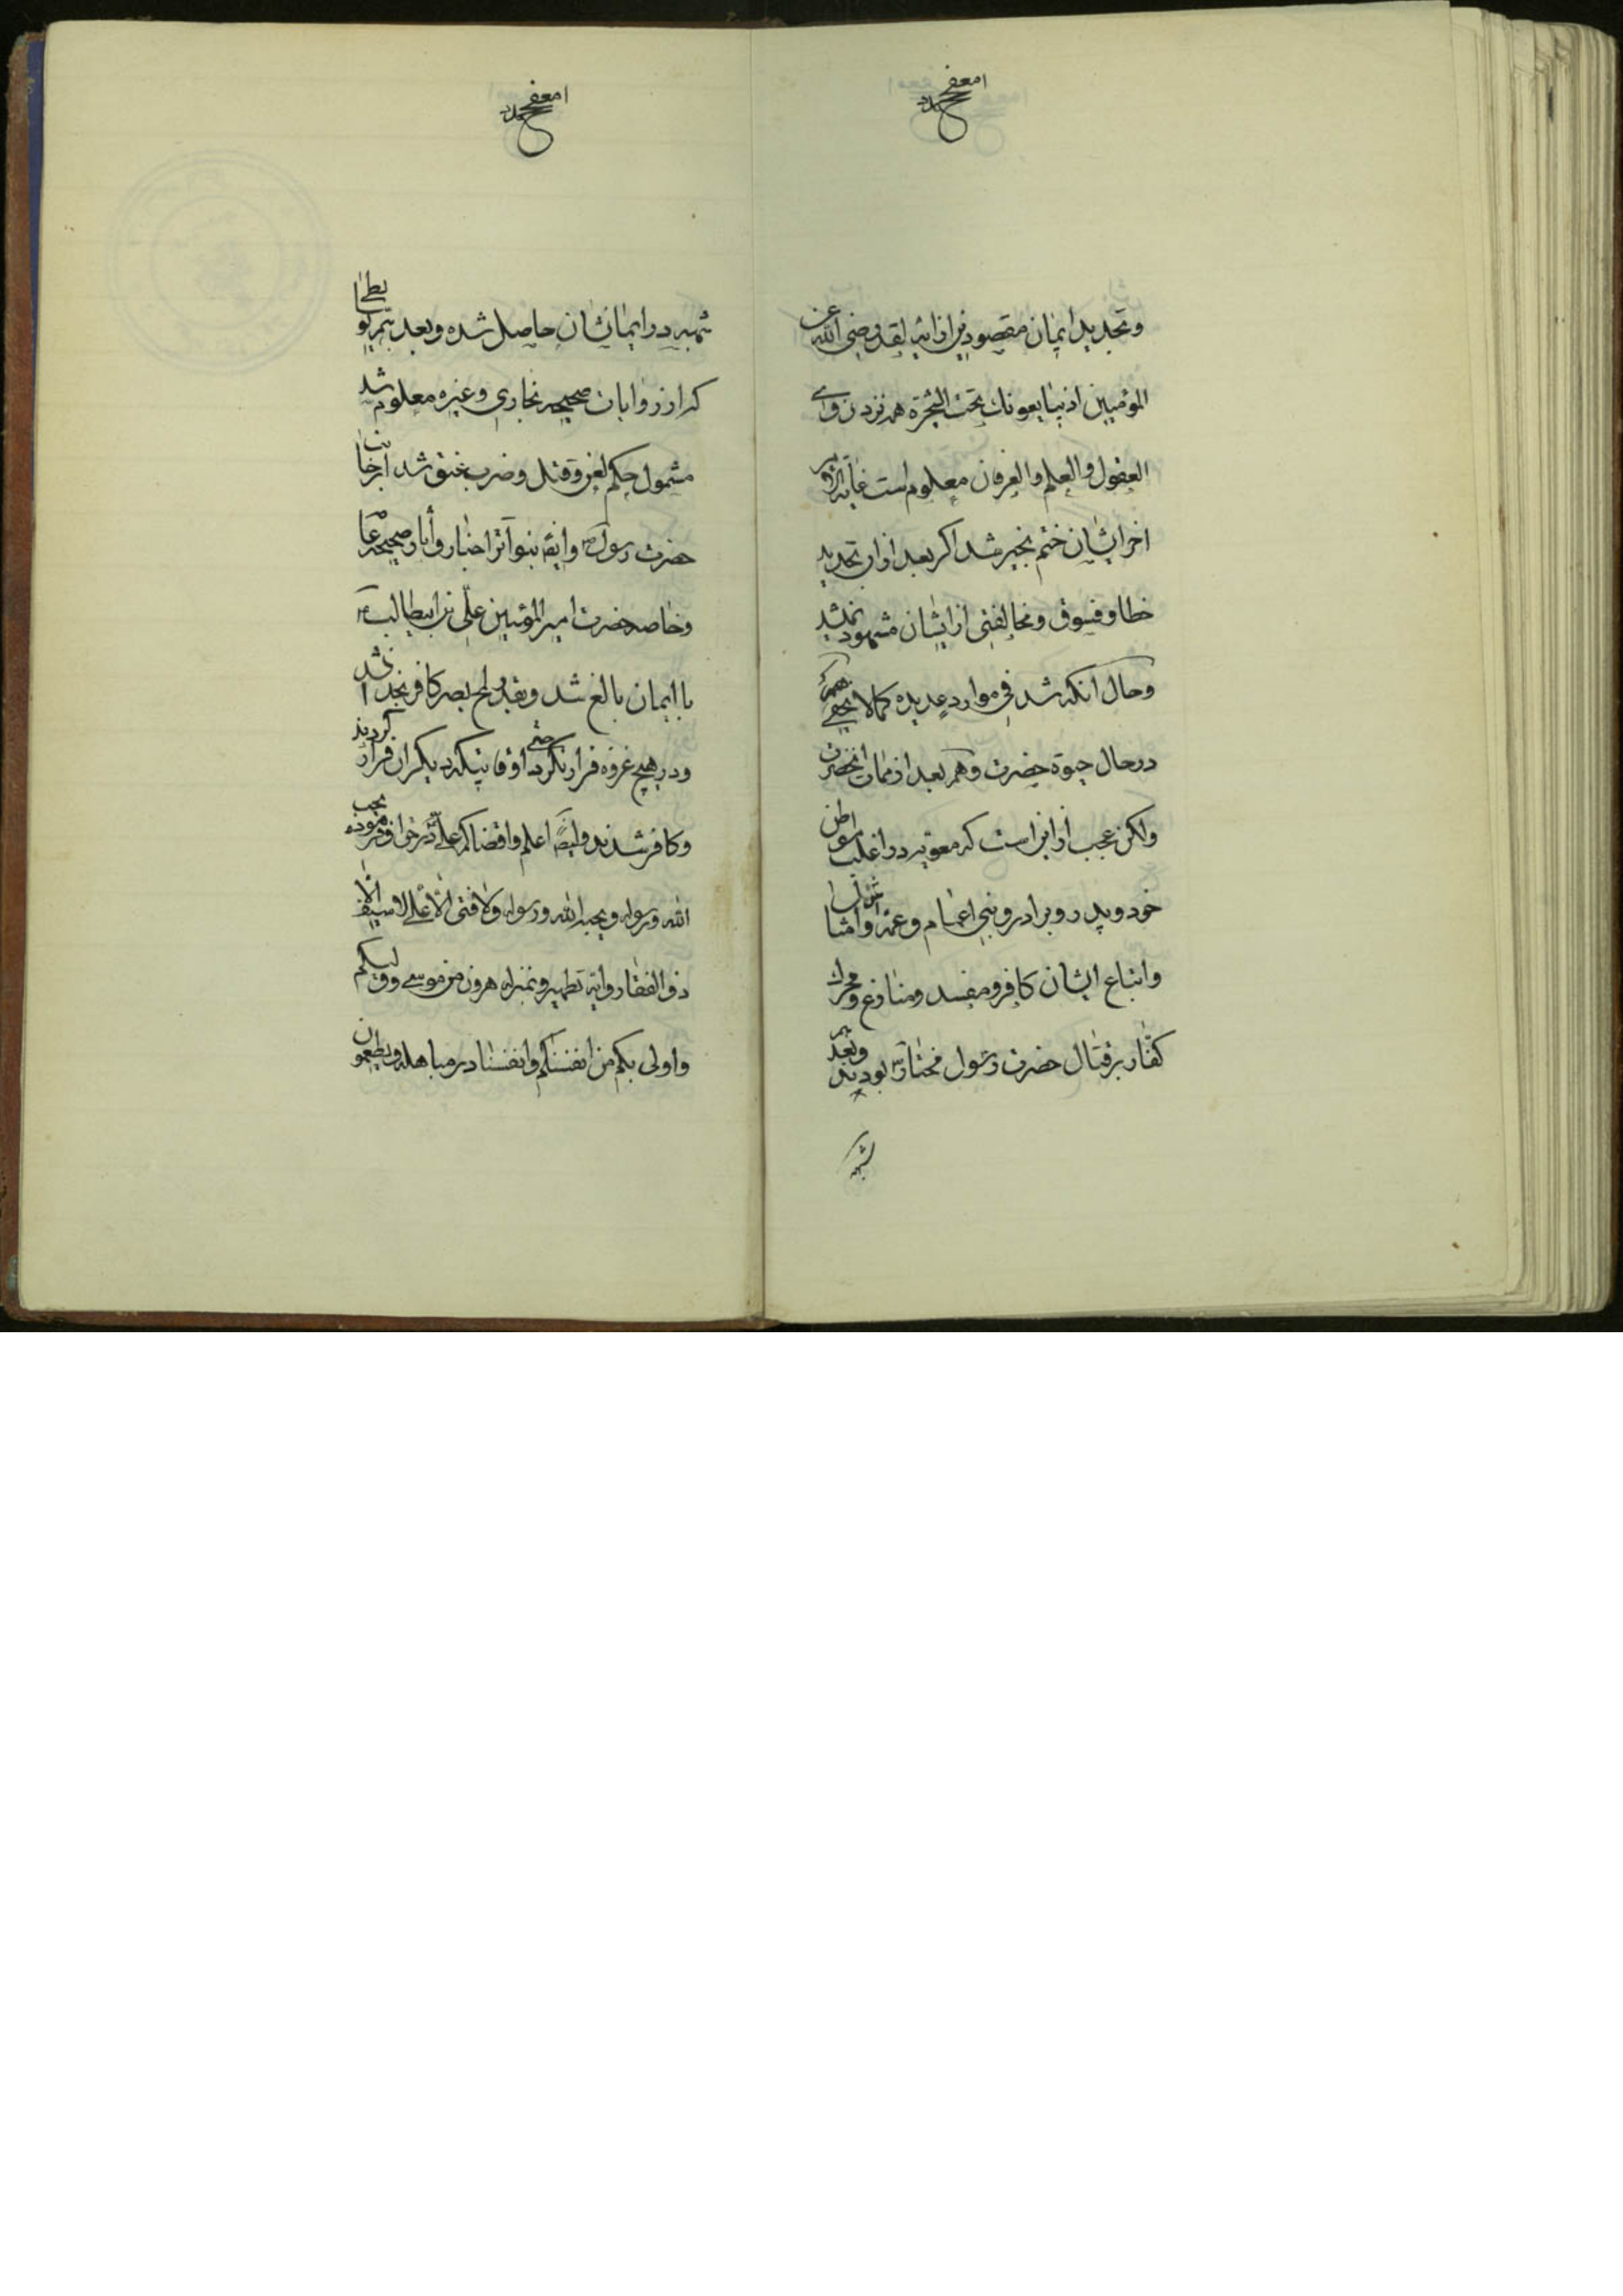 وتجدید ایمان مقصود نیز از آیه لقد رضی الله عن
المؤمنین اذ یبایعونك تحت الشجرة همه نزد ذوی
العقول والعلم والعرفان معلوم است غایة الامر
اخر ایشان ختم بخیر شد اکر بعد از ان تجدید
خطا و فسوق و مخالفتی از ایشان مشهود نمیشد
وحال انکه شد فی موارد عدیده کما لا یخفی
در حال حیوة حضرت وهم بعد از ممات انحضرت
ولکن عجب از این است که معویه در اغلب مواطن
خود و پدر و برادر و بنی اعمام و عمه و امثال
واتباع ایشان کافر و مفسد و منازع و محرك
کفار بر قتال حضرت رسول مختار بودند وبعد
شبهه
شبهه در ایمانشان حاصل شده وبعد
که از روایات صحیحه بخاری وغیره معلوم شد
مشمول حکم لعن و قتل و ضرب عنق شد از جانب
حضرت رسول وایضا بتواتر اخبار و آثار صحیحه
وخاصه حضرت امیر المؤمنین علی بن ابیطالب
با ایمان بالغ شد وبقدر لمح بصر کافر بخدا نشد
ودر هیچ غزوه فرار نکرد حتی اوقاتیکه دیکران فرار کردند
وکافر شدند وایضا اعلم واقضاکم علی در حق او فرموده یحب
الله ورسوله ویحبه الله ورسوله ولا فتی الا علی لا سیف الا
ذو الفقار وایة تطهیر وبمنزله هرون من موسی وولیکم
واولی بکم من انفسکم وانفسنا در مباهله ویطعمون